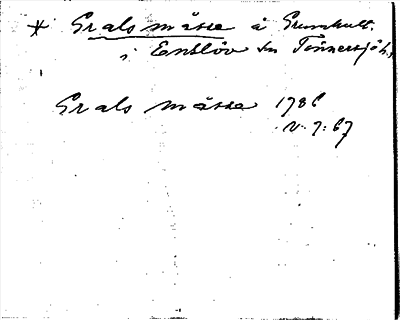 * Grals måsse å Grumhult.
i Enslöv sn Tönnersjö h.
Grals måsse 1786
v. 7: 67